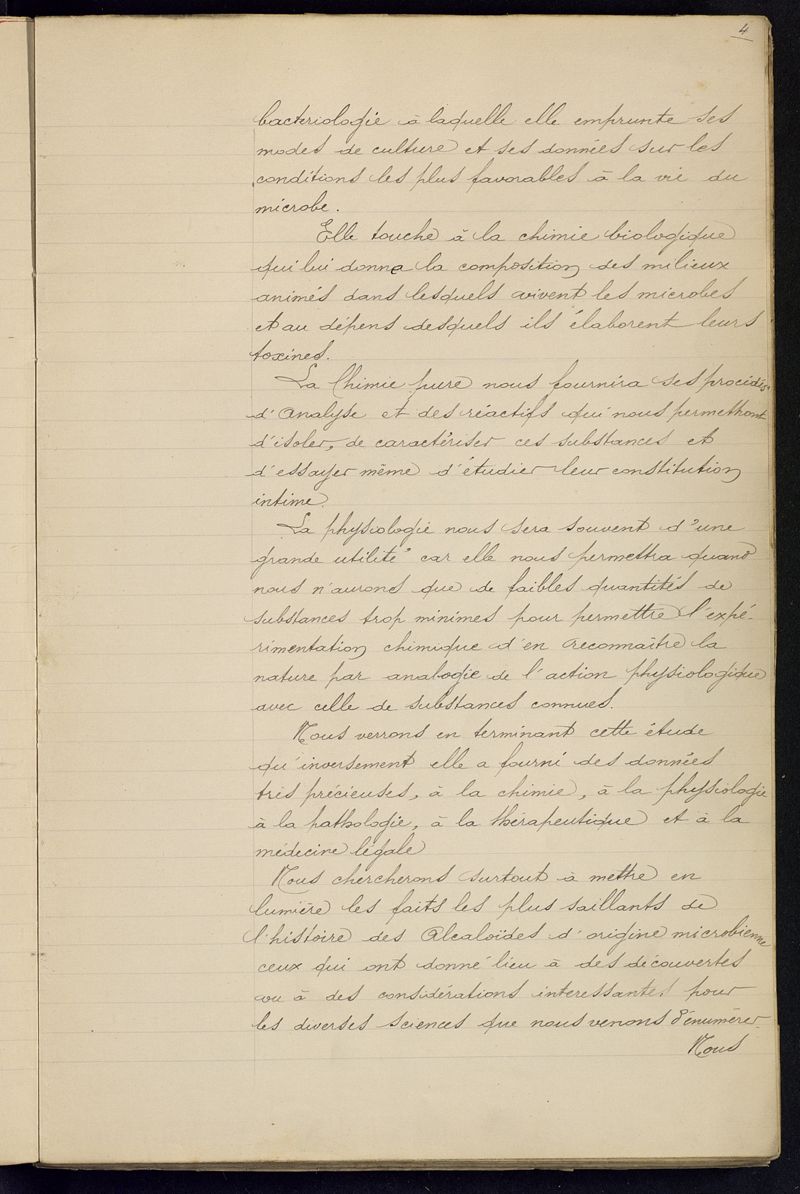 4
bacteriologie à laquelle elle emprunte ses
modes de culture et ses données sur les
conditions les plus favorables à la vie du
microbe.
Elle touche à la chimie biologique
qui lui donne la composition des milieux
animés dans lesquels vivent les microbes
et au dépens desquels ils élaborent leurs
toxines.
La Chimie pure nous fournira ses procédés
d'analyse et des réactifs qui nous permettront
d'isoler, de caractériser ces substances et
d'essayer même d'étudier leur constitution
intime.
La physiologie nous sera souvent d'une
grande utilité car elle nous permettra quand
nous n'aurons que de faibles quantités de
substances trop minimes pour permettre l'expé-
rimentation chimique d'en reconnaître la
nature par analogie de l'action physiologique
avec celle de substances connues.
Nous verrons en terminant cette étude
qu'inversement elle a fourni des données
très précieuses, à la chimie, à la physiologie
à la pathologie, à la thérapeutique et à la
médecine légale
Nous chercherons surtout à mettre en
lumière les faits les plus saillants de
l'histoire des Alcaloïdes d'origine microbienne
ceux qui ont donné lieu à des découvertes
ou à des considérations interessantes pour
les diverses sciences que nous venons d'énumérer.
Nous